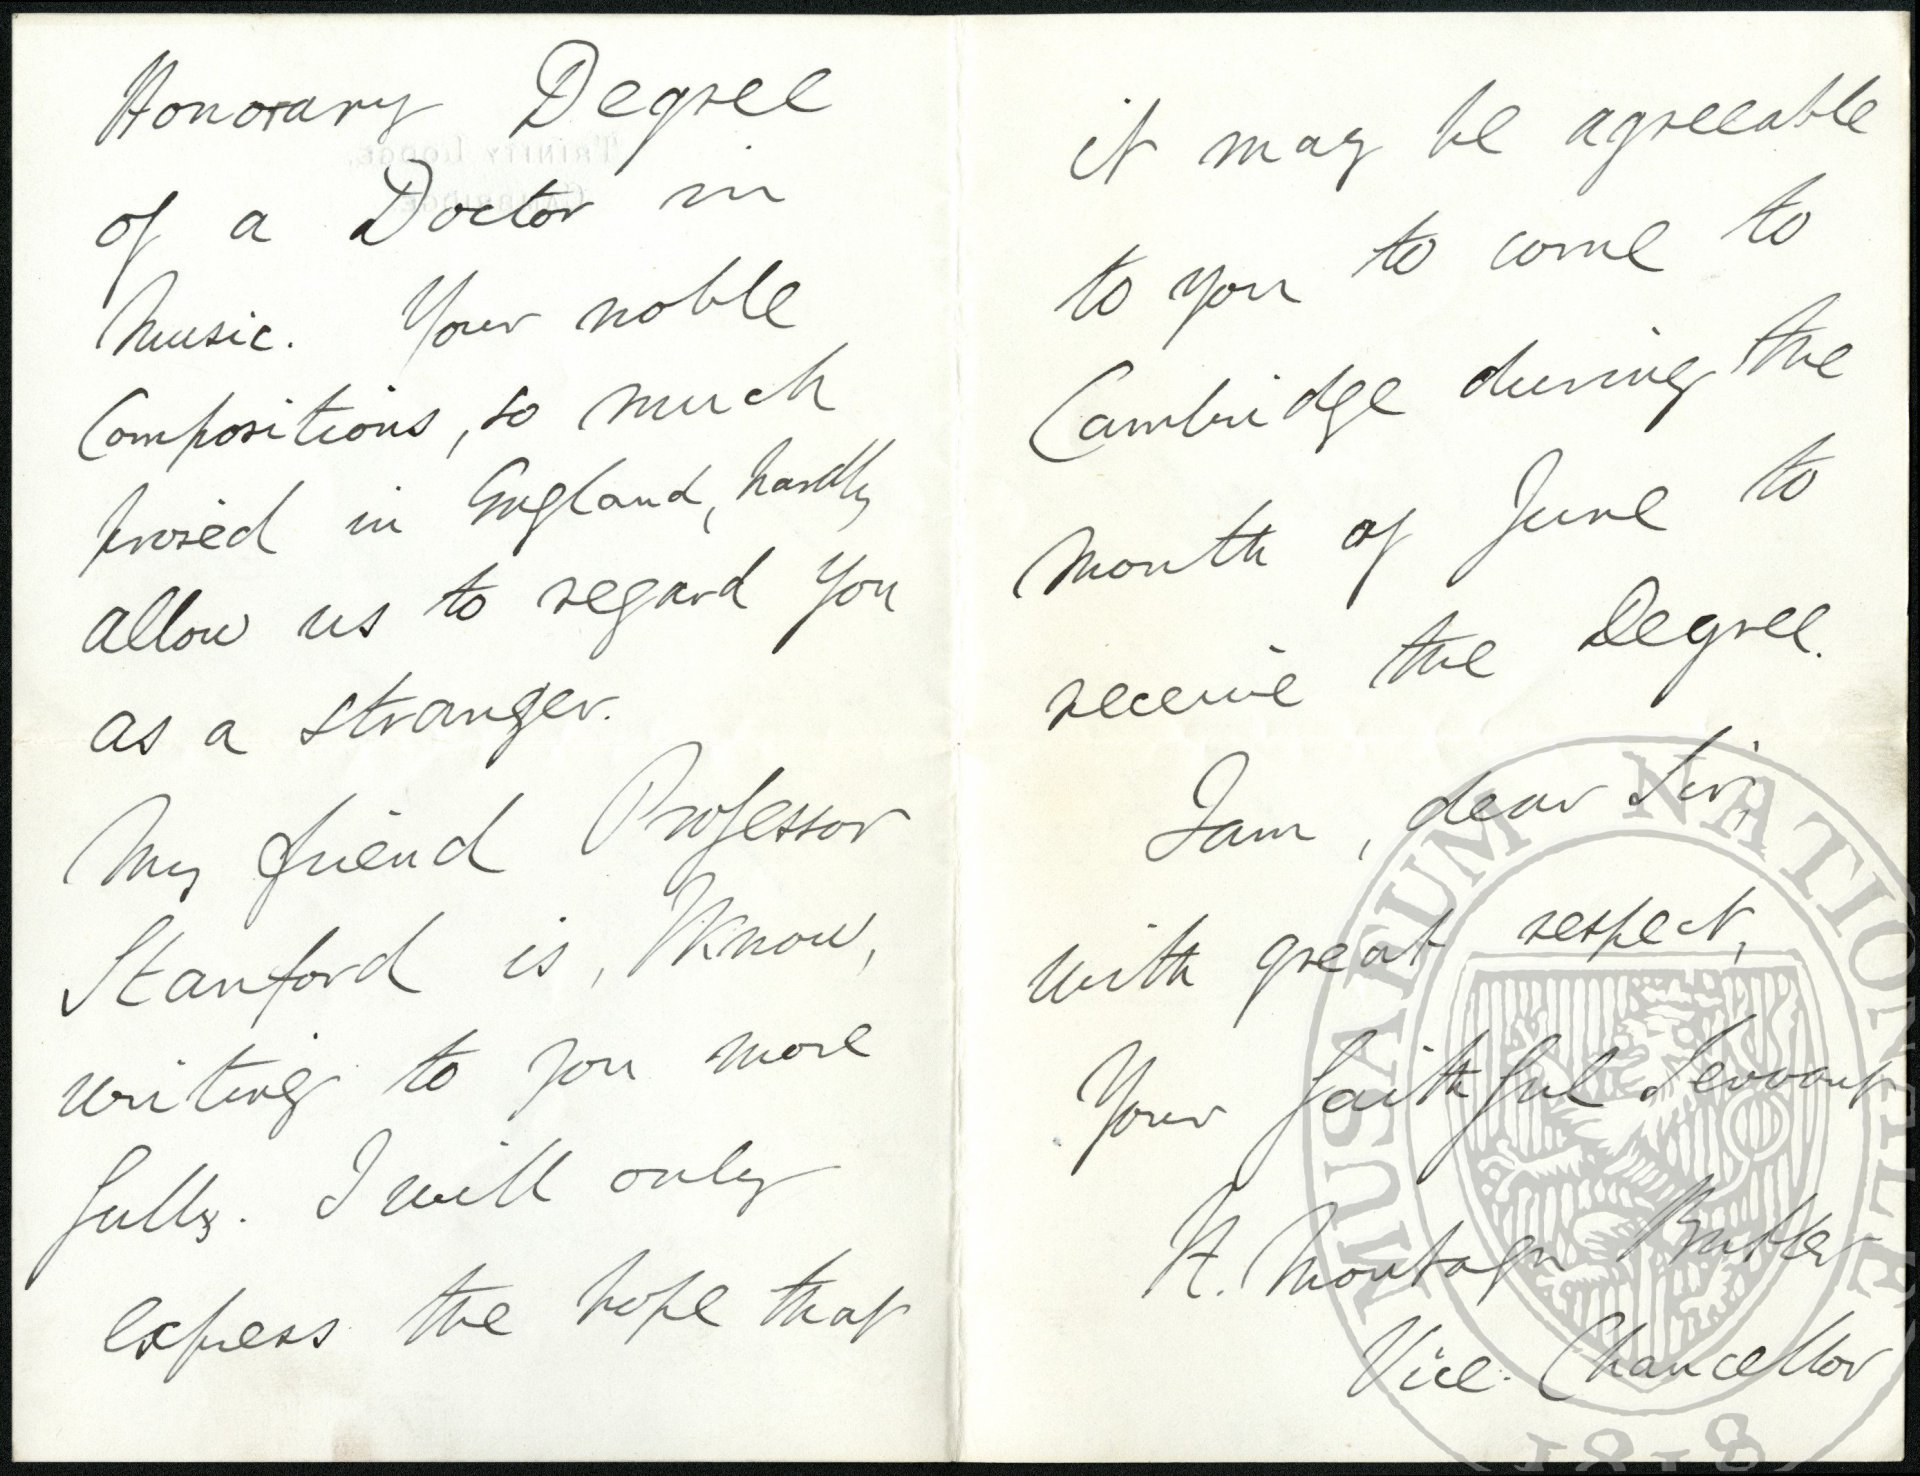 Honorary Degree
of a Doctor in
Music. Your noble
Compositions, so much
prized in England, hardly
allow us to regard you
as a stranger.
My friend Professor
Stanford is, I know,
writing to you more
fully. I will only
express the hope that
it may be agreeable
to you to come to
Cambridge during the
month of June to
receive the Degree.
I am, dear Sir,
with great respect,
Your faithful Servant
H. Montagu Butler
Vice-Chancellor
TRINITY LODGE,
CAMBRIDGE.
MUSAEUM NATIONALE
1818